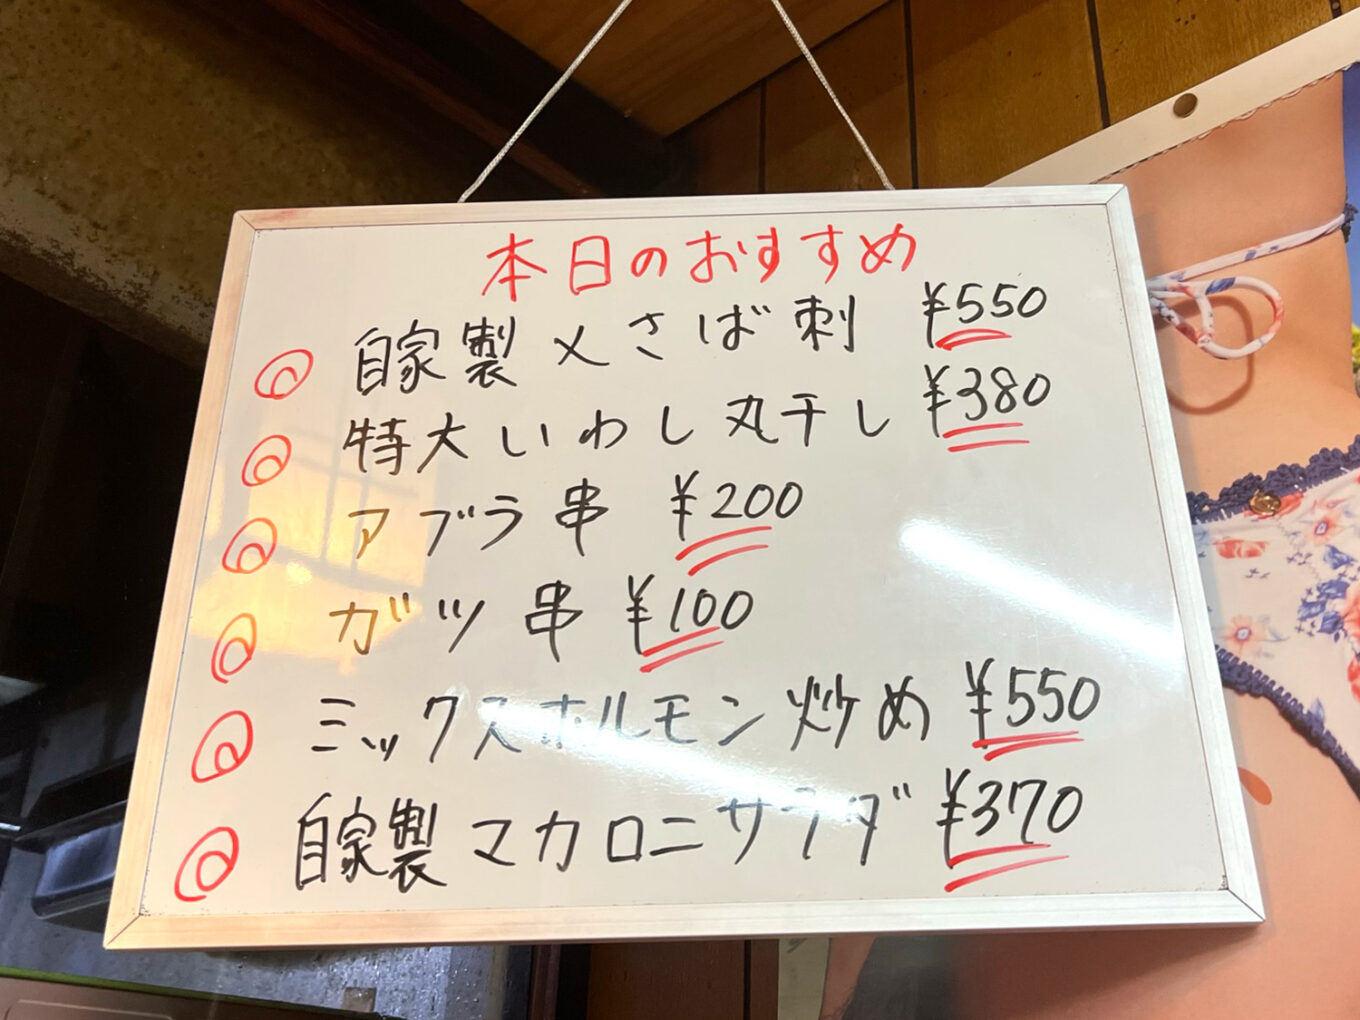 本日のおすすめ
◎ 自家製〆さば刺 ¥550
◎ 特大いわし丸干し ¥380
◎ アブラ串 ¥200
◎ ガツ串 ¥100
◎ ミックスホルモン炒め ¥550
◎ 自家製マカロニサラダ ¥370